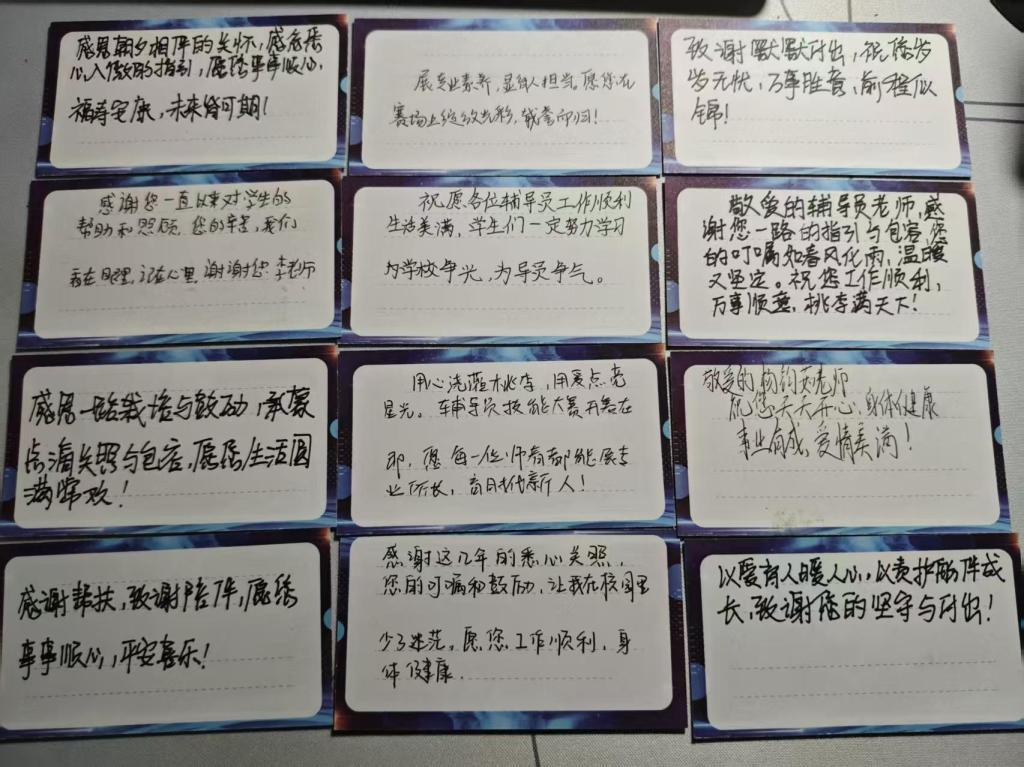 感恩朝夕相伴的关怀，感念悉
心入微的指引，愿您平平顺心，
福寿安康，未来皆可期！
展专业素养，显育人担当，愿您在
赛场上绽放光彩，载誉而归！
致谢默默付出，祝您岁
岁无忧，万事胜意，前程似
锦！
感谢您一直以来对学生的
帮助和照顾，您的辛苦，我们
看在眼里，记在心里，谢谢您 李老师
祝愿各位辅导员工作顺利
生活美满，学生们一定努力学习
为学校争光，为导员争气。
敬爱的辅导员老师，感
谢您一路的指引与包容，您
的叮嘱如春风化雨，温暖
又坚定。祝您工作顺利，
万事顺意，桃李满天下！
感恩一路栽培与鼓励，承蒙
点滴关照与包容，愿您生活圆
满常欢！
用心浇灌桃李，用爱点亮
星光。辅导员技能大赛开赛在
即，愿每一位师者都能展专
业所长，育时代新人！
敬爱的 老师
祝您天天开心，身体健康
事业有成，爱情美满！
感谢帮扶，致谢陪伴，愿您
事事顺心，平安喜乐！
感谢这几年的悉心关照，
您的叮嘱和鼓励，让我在校园里
少了迷茫。愿您工作顺利，身
体健康。
以爱育人暖人心，以责护航伴成
长，致谢您的坚守与付出！